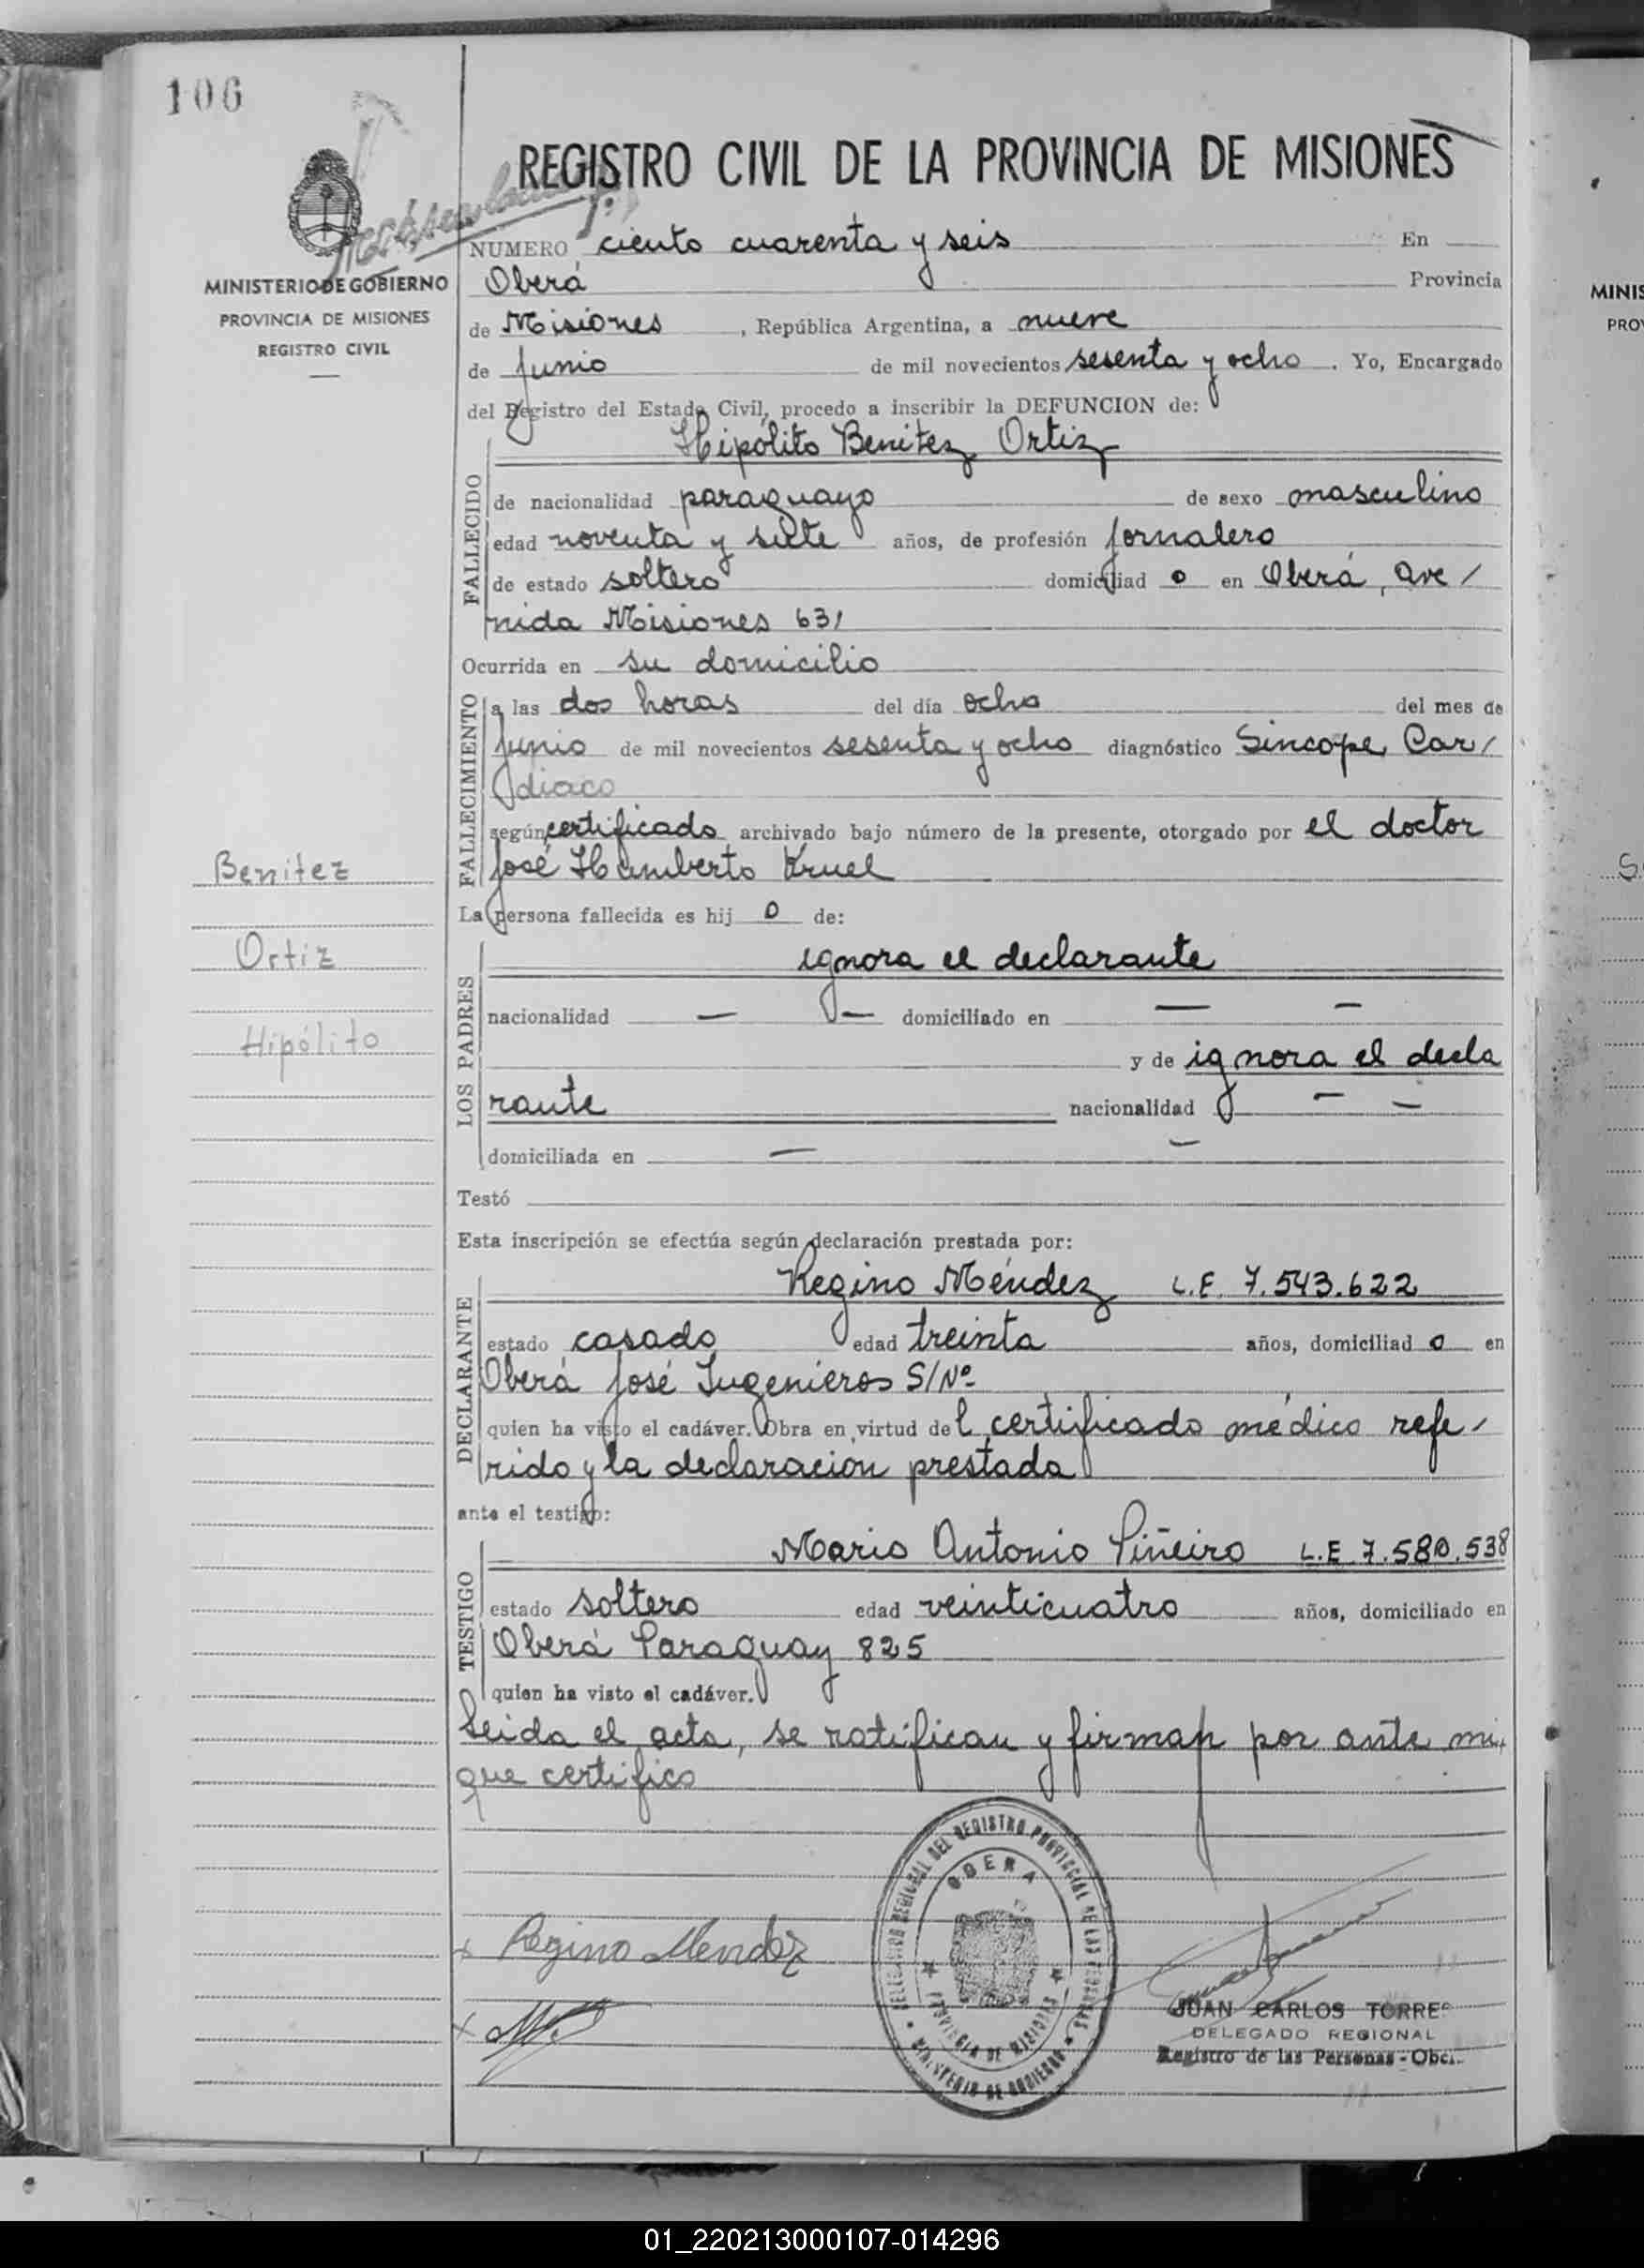 106
REGISTRO CIVIL DE LA PROVINCIA DE MISIONES
MINISTERIO DE GOBIERNO
PROVINCIA DE MISIONES
REGISTRO CIVIL
NUMERO ciento cuarenta y seis En
Oberá Provincia
de Misiones , República Argentina, a nueve
de Junio de mil novecientos sesenta y ocho . Yo, Encargado
del Registro del Estado Civil, procedo a inscribir la DEFUNCION de:
Hipólito Benitez Ortiz
FALLECIDO
de nacionalidad paraguayo de sexo masculino
edad noventa y siete años, de profesión Jornalero
de estado soltero domiciliad o en Oberá, ave /
nida Misiones 631
Ocurrida en su domicilio
FALLECIMIENTO
a las dos horas del día ocho del mes de
Junio de mil novecientos sesenta y ocho diagnóstico Sincope Car/
diaco
según certificado archivado bajo número de la presente, otorgado por el doctor
José Humberto Kruel
Benitez
Ortiz
Hipólito
La persona fallecida es hij o de:
LOS PADRES
ignora el declarante
nacionalidad — — domiciliado en — —
y de ignora el decla
rante nacionalidad — —
domiciliada en — —
Testó
Esta inscripción se efectúa según declaración prestada por:
DECLARANTE
Regino Méndez L.E. 7.543.622
estado casado edad treinta años, domiciliad o en
Oberá José Ingenieros S/Nº
quien ha visto el cadáver. Obra en virtud de l certificado médico refe/
rido y la declaracion prestada
ante el testigo:
TESTIGO
Mario Antonio Piñeiro L.E 7.580.538
estado soltero edad veinticuatro años, domiciliado en
Oberá Paraguay 825
quien ha visto el cadáver.
Leida el acta, se ratifican y firman por ante mi,
que certifico
DELEGACION REGIONAL DEL REGISTRO PROVINCIAL DE LAS PERSONAS
OBERA
PROVINCIA DE MISIONES
MINISTERIO DE GOBIERNO
x Regino Mendez
x
JUAN CARLOS TORRES
DELEGADO REGIONAL
Registro de las Personas - Obe.
MINIS
PROV
01_220213000107-014296